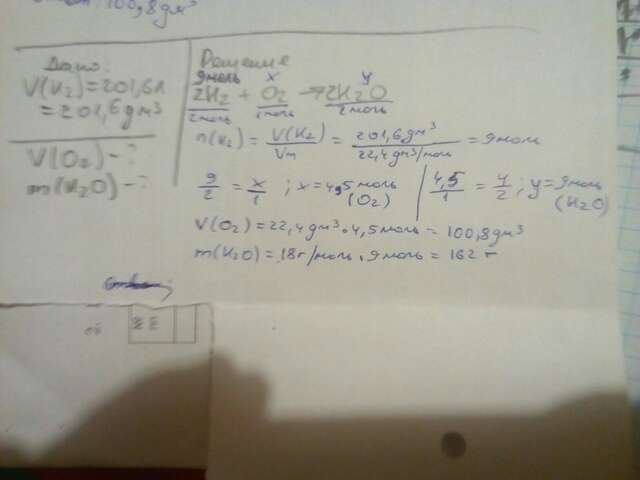 100,8дм³
Дано:
V(H₂)=201,6л
=201,6дм³
V(O₂)-?
m(H₂O)-?
Решение
9моль x y
2H₂ + O₂ → 2H₂O
2моль 1моль 2моль
n(H₂) = V(H₂)/Vm = 201,6дм³/22,4дм³/моль = 9моль
9/2 = x/1 ; x=4,5моль (O₂) | 4,5/1 = y/2 ; y=9моль (H₂O)
V(O₂)=22,4дм³·4,5моль=100,8дм³
m(H₂O)=18г/моль·9моль=162г